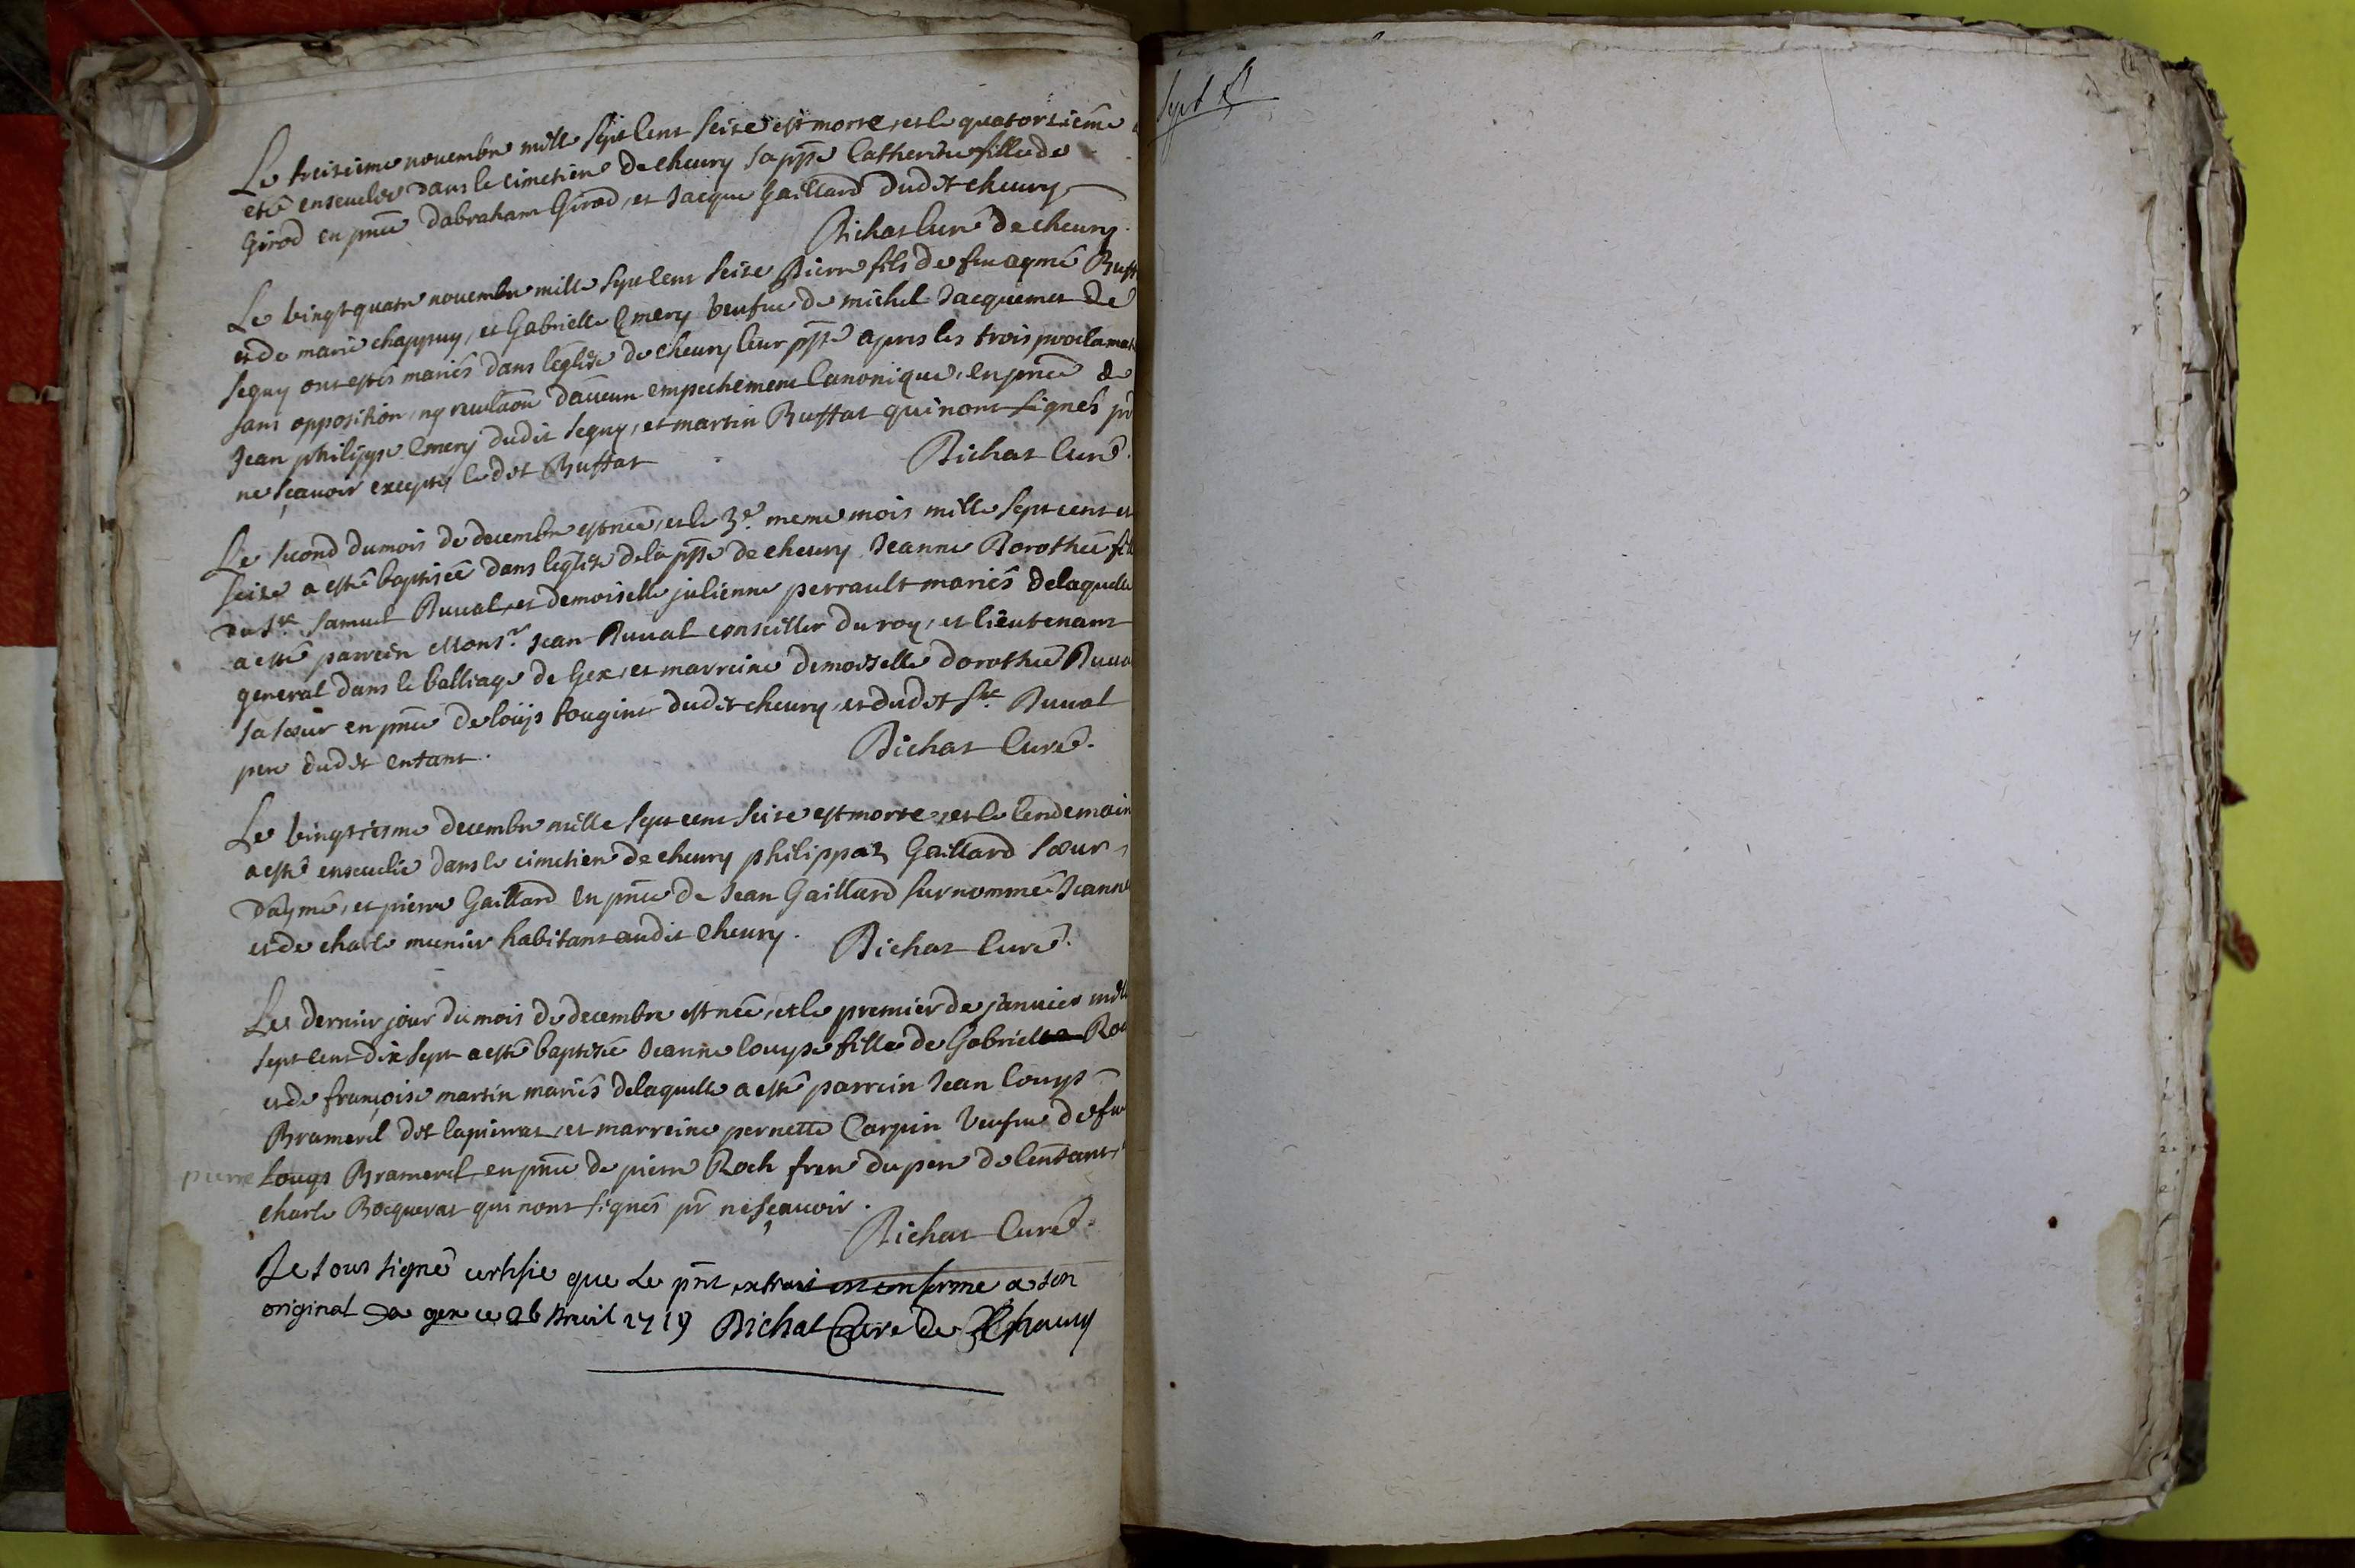 Le treisieme novembre mille sept cent seise est morte, et le quatorsieme
esté ensevelie dans le cimetiere de chevry sa ppsse Catherine fille de
Girod en pnce dabraham Girod, et Jacque Gaillard dudit chevry
Bichat curé de chevry.
Le vingt quatre novembre mille sept cent seise Pierre fils de feu aymé Buff
et de marie chappuy, et Gabrielle Emery veufve de michel Jacquemet de
segny ont estés mariés dans leglise de chevry leur ppsse apres les trois proclamat
sans opposition, ny revelaon daucun empechement Canonique, en pnce de
Jean philippe Emery dudit segny, et martin Buffat qui nont signés pr
ne sçavoir exepté le dit Buffat
Bichat Curé.
Le second du mois de decembre est née, et le 3e. meme mois mille sept cent et
seise a esté baptisée dans leglise de la ppsse de chevry Jeanne Dorothée fill
du sr. Samuel Duval, et demoiselle julienne perrault mariés de laquelle
a esté parrein Monsr. Jean Duval conseiller du roy, et lieutenant
general dans le balliage de Gex, et marreine demoiselle dorothée Duva
sa soeur en pnce de loüys fougint dudit chevry, et dudit sr. Duval
pere dudit enfant.
Bichat Curé.
Le vingtiesme decembre mille sept cent seise est morte, et le lendemain
a esté ensevelie dans le cimetiere de chevry philippaz Gaillard soeur
daymé, et pierre Gaillard en pnce de Jean Gaillard surnommé Jeanne
et de charle munier habitant audit chevry.
Bichat Curé.
Le dernier jour du mois de decembre est née, et le premier de janvier mill
sept cent dix sept a esté baptisée Jeanne louyse fille de Gabriel Roc
et de françoise martin mariés de laquelle a esté parrein Jean louys
Bramerel dit lapierraz, et marreine pernette Carpin veufve de feu
pierre Louys Bramerel, en pnce de pierre Roch frere du pere de lenfant,
charle Bocquerat qui nont signés pr ne sçavoir.
Bichat Curé.
Je sous signé certifie que le pnt extrait est conforme a son
original a gex ce 26 Avril 1719 Bichat Cure de Chevry